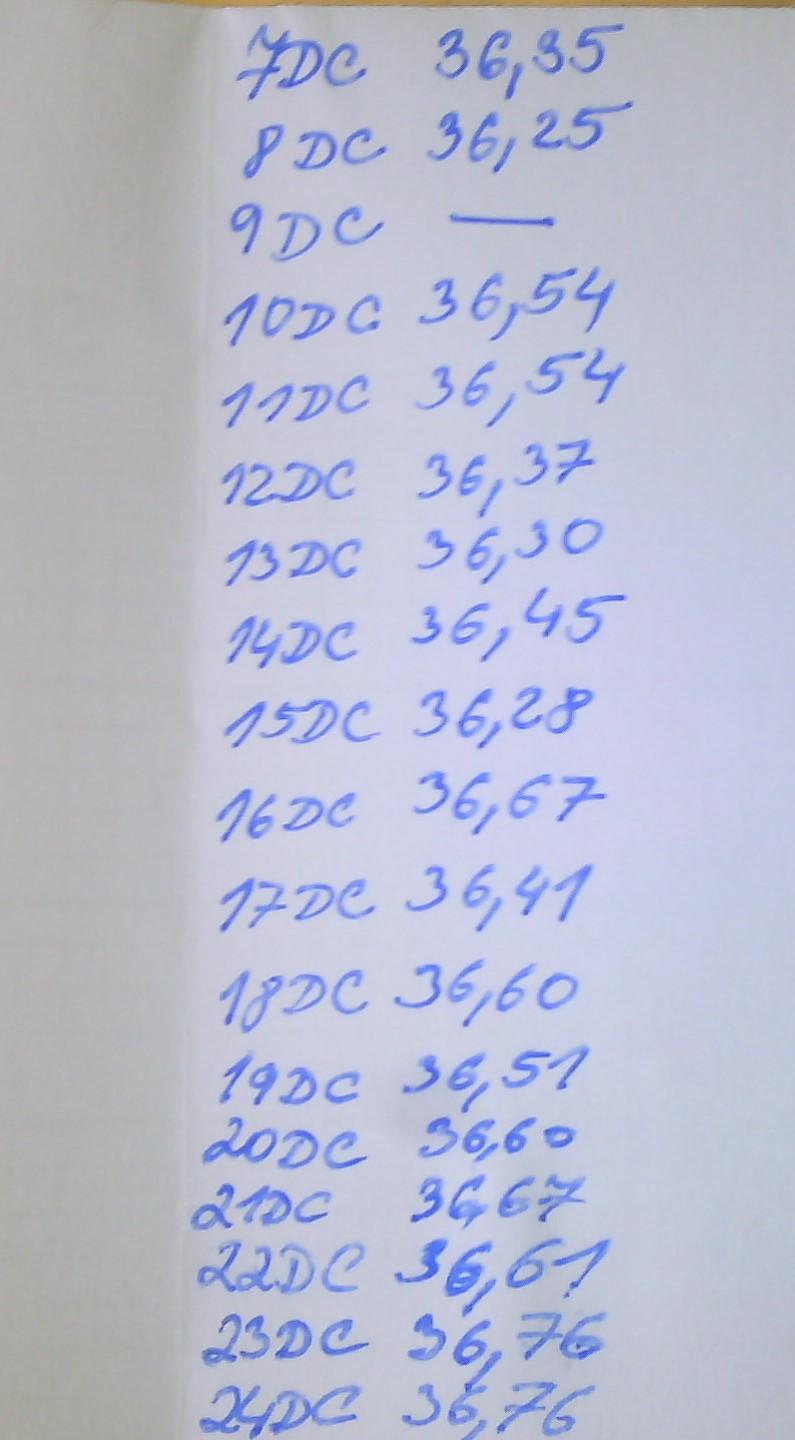 7DC 36,35
8DC 36,25
9DC —
10DC 36,54
11DC 36,54
12DC 36,37
13DC 36,30
14DC 36,45
15DC 36,28
16DC 36,67
17DC 36,41
18DC 36,60
19DC 36,51
20DC 36,60
21DC 36,67
22DC 36,61
23DC 36,76
24DC 36,76